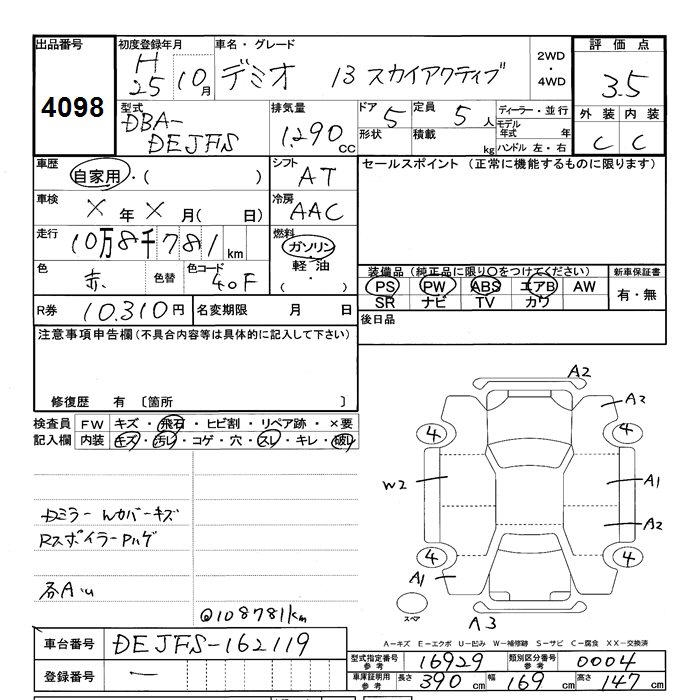 出品番号 初度登録年月 車名・グレード 2WD・4WD 評価点
4098 H25 10月 デミオ 13 スカイアクティブ 3.5
型式 排気量 ドア 5 定員 5人 ディーラー・並行 外装 内装
DBA-DEJFS 1.290cc 形状 積載 kg モデル年式 年 ハンドル 左・右 C C
車歴 自家用・( ) シフト AT セールスポイント (正常に機能するものに限ります)
車検 X年X月( 日) 冷房 AAC
走行 10万8千781km 燃料 ガソリン・軽油・( )
色 赤 色替 色コード 40F
装備品 (純正品に限り○をつけてください) 新車保証書
PS PW ABS エアB AW 有・無
SR ナビ TV カワ
R券 10.310円 名変期限 月 日 後日品
注意事項申告欄(不具合内容等は具体的に記入して下さい)
修復歴 有 〔箇所 〕
検査員記入欄 FW キズ・飛石・ヒビ割・リペア跡・×要
内装 キズ・汚レ・コゲ・穴・スレ・キレ・破レ
A2
A2
4 4
W2 A1
A2
4 4
A1
スペア A3
Dミラー Wカバーキズ
RスポイラーPハゲ
各A.u
@108781km
A-キズ E-エクボ U-凹み W-補修跡 S-サビ C-腐食 XX-交換済
車台番号 DEJFS-162119
型式指定番号 参考 16929 類別区分番号 参考 0004
登録番号 ー 車庫証明用 参考 長さ 390cm 幅 169cm 高さ 147cm